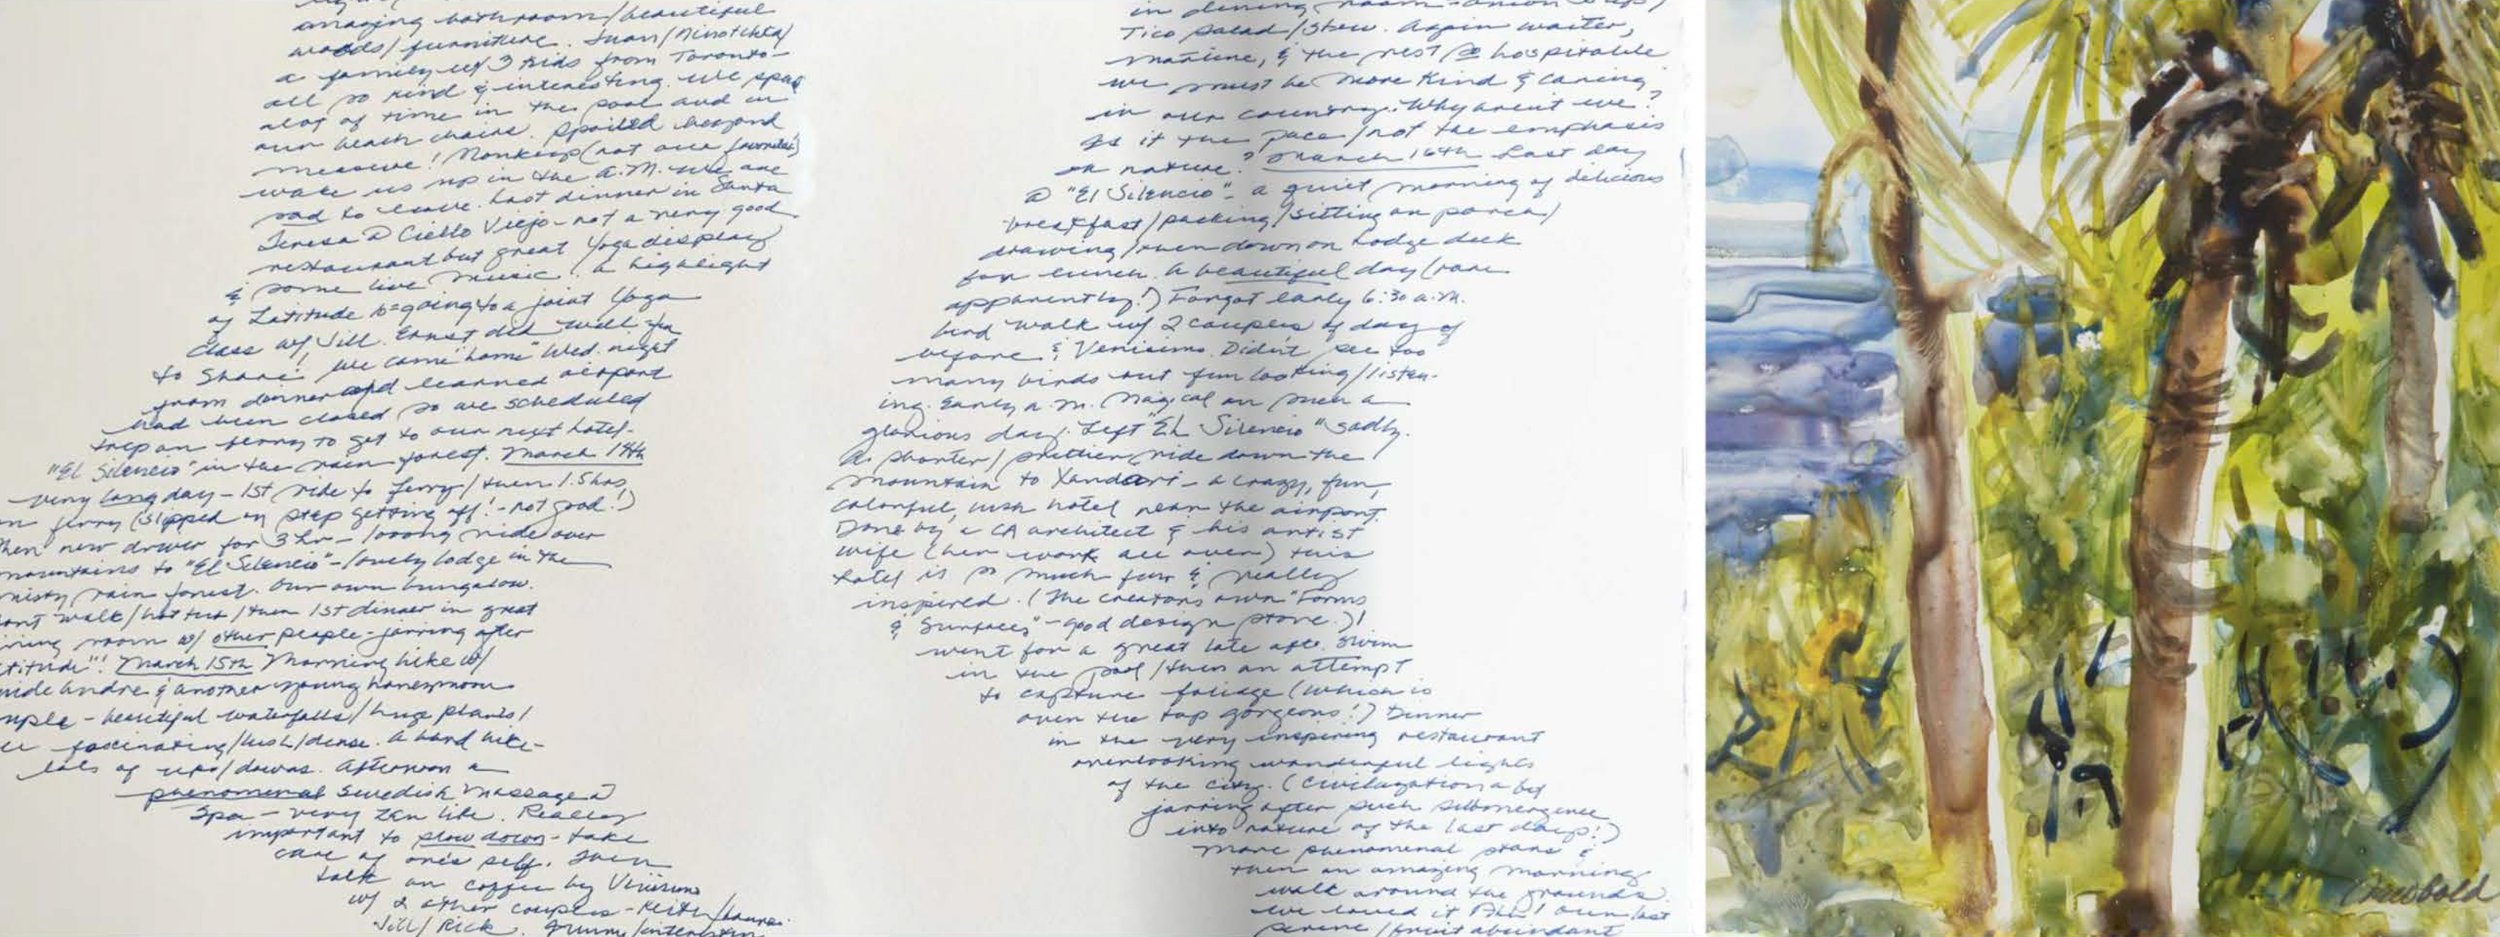 amazing bathroom/beautiful
woods/furniture. Juan/
a family w/ 3 kids from Toronto-
all so kind & interesting. We spent
alot of time in the pool and in
our beach chairs. Spoiled beyond
measure! Monkeys (not our favorites)
wake us up in the A.M. We are
sad to leave. Last dinner in Santa
Teresa @ Ciello Viejo - not a very good
restaurant but great Yoga display
& some live music. A highlight
of Latitude 10 = going to a joint Yoga
class w/ Jill. Ernst did well. Fun
to share! We came "home" Wed. night
from dinner and learned airport
had been closed so we scheduled
trip on ferry to get to our next hotel-
"El Silencio" in the rain forest. March 14th
very long day - 1st ride to ferry/then 1.5 hrs
on ferry (slipped on step getting off! - not good!)
then new driver for 3 hr - loooong ride over
mountains to "El Silencio" - lovely lodge in the
misty rain forest. Our own bungalow.
walk/hot tub/then 1st dinner in great
dining room w/ other people - jarring after
"Latitude"! March 15th Morning hike w/
guide Andre & another young honeymoon
couple - beautiful waterfalls/huge plants/
fascinating/lush/dense. A hard hike-
lots of ups/downs. Afternoon a
phenomenal Swedish massage @
Spa - very Zen like. Really
important to slow down - take
care of one's self. Then
talk on coffee by
w/ 2 other couples - Keith/
Jill/Rick. Funny/interesting
in dining room - onion
Tico salad/stew. Again waiter,
& the rest so hospitable
we must be more kind & caring
in our country. Why aren't we?
Is it the pace/not the emphasis
on nature? March 16th Last day
@ "El Silencio" - a quiet morning of delicious
breakfast/packing/sitting on porch/
drawing/then down on Lodge deck
for lunch. A beautiful day (rare
apparently!) Forgot early 6:30 a.m.
bird walk w/ 2 couples of day of
before & Venisimo. Didn't see too
many birds but fun looking/listen-
ing. Early a.m. magical on such a
glorious day. Left "El Silencio" sadly.
A shorter/prettier ride down the
mountain to Xandari - a crazy, fun,
colorful, lush hotel near the airport.
Done by a CA architect & his artist
wife (her work all over) this
hotel is so much fun & really
inspired. (The creators own "Forms
& Surfaces" - good design store.)!
went for a great late aft. swim
in the pool/then an attempt
to capture foliage (which is
over the top gorgeous!) Dinner
in the very inspiring restaurant
overlooking wonderful lights
of the city. (Civilization a bit
jarring after such submergence
into nature of the last days!)
More phenomenal stars &
then an amazing morning
walk around the grounds.
We loved it ALL! Our last
/fruit abundant
Newbold